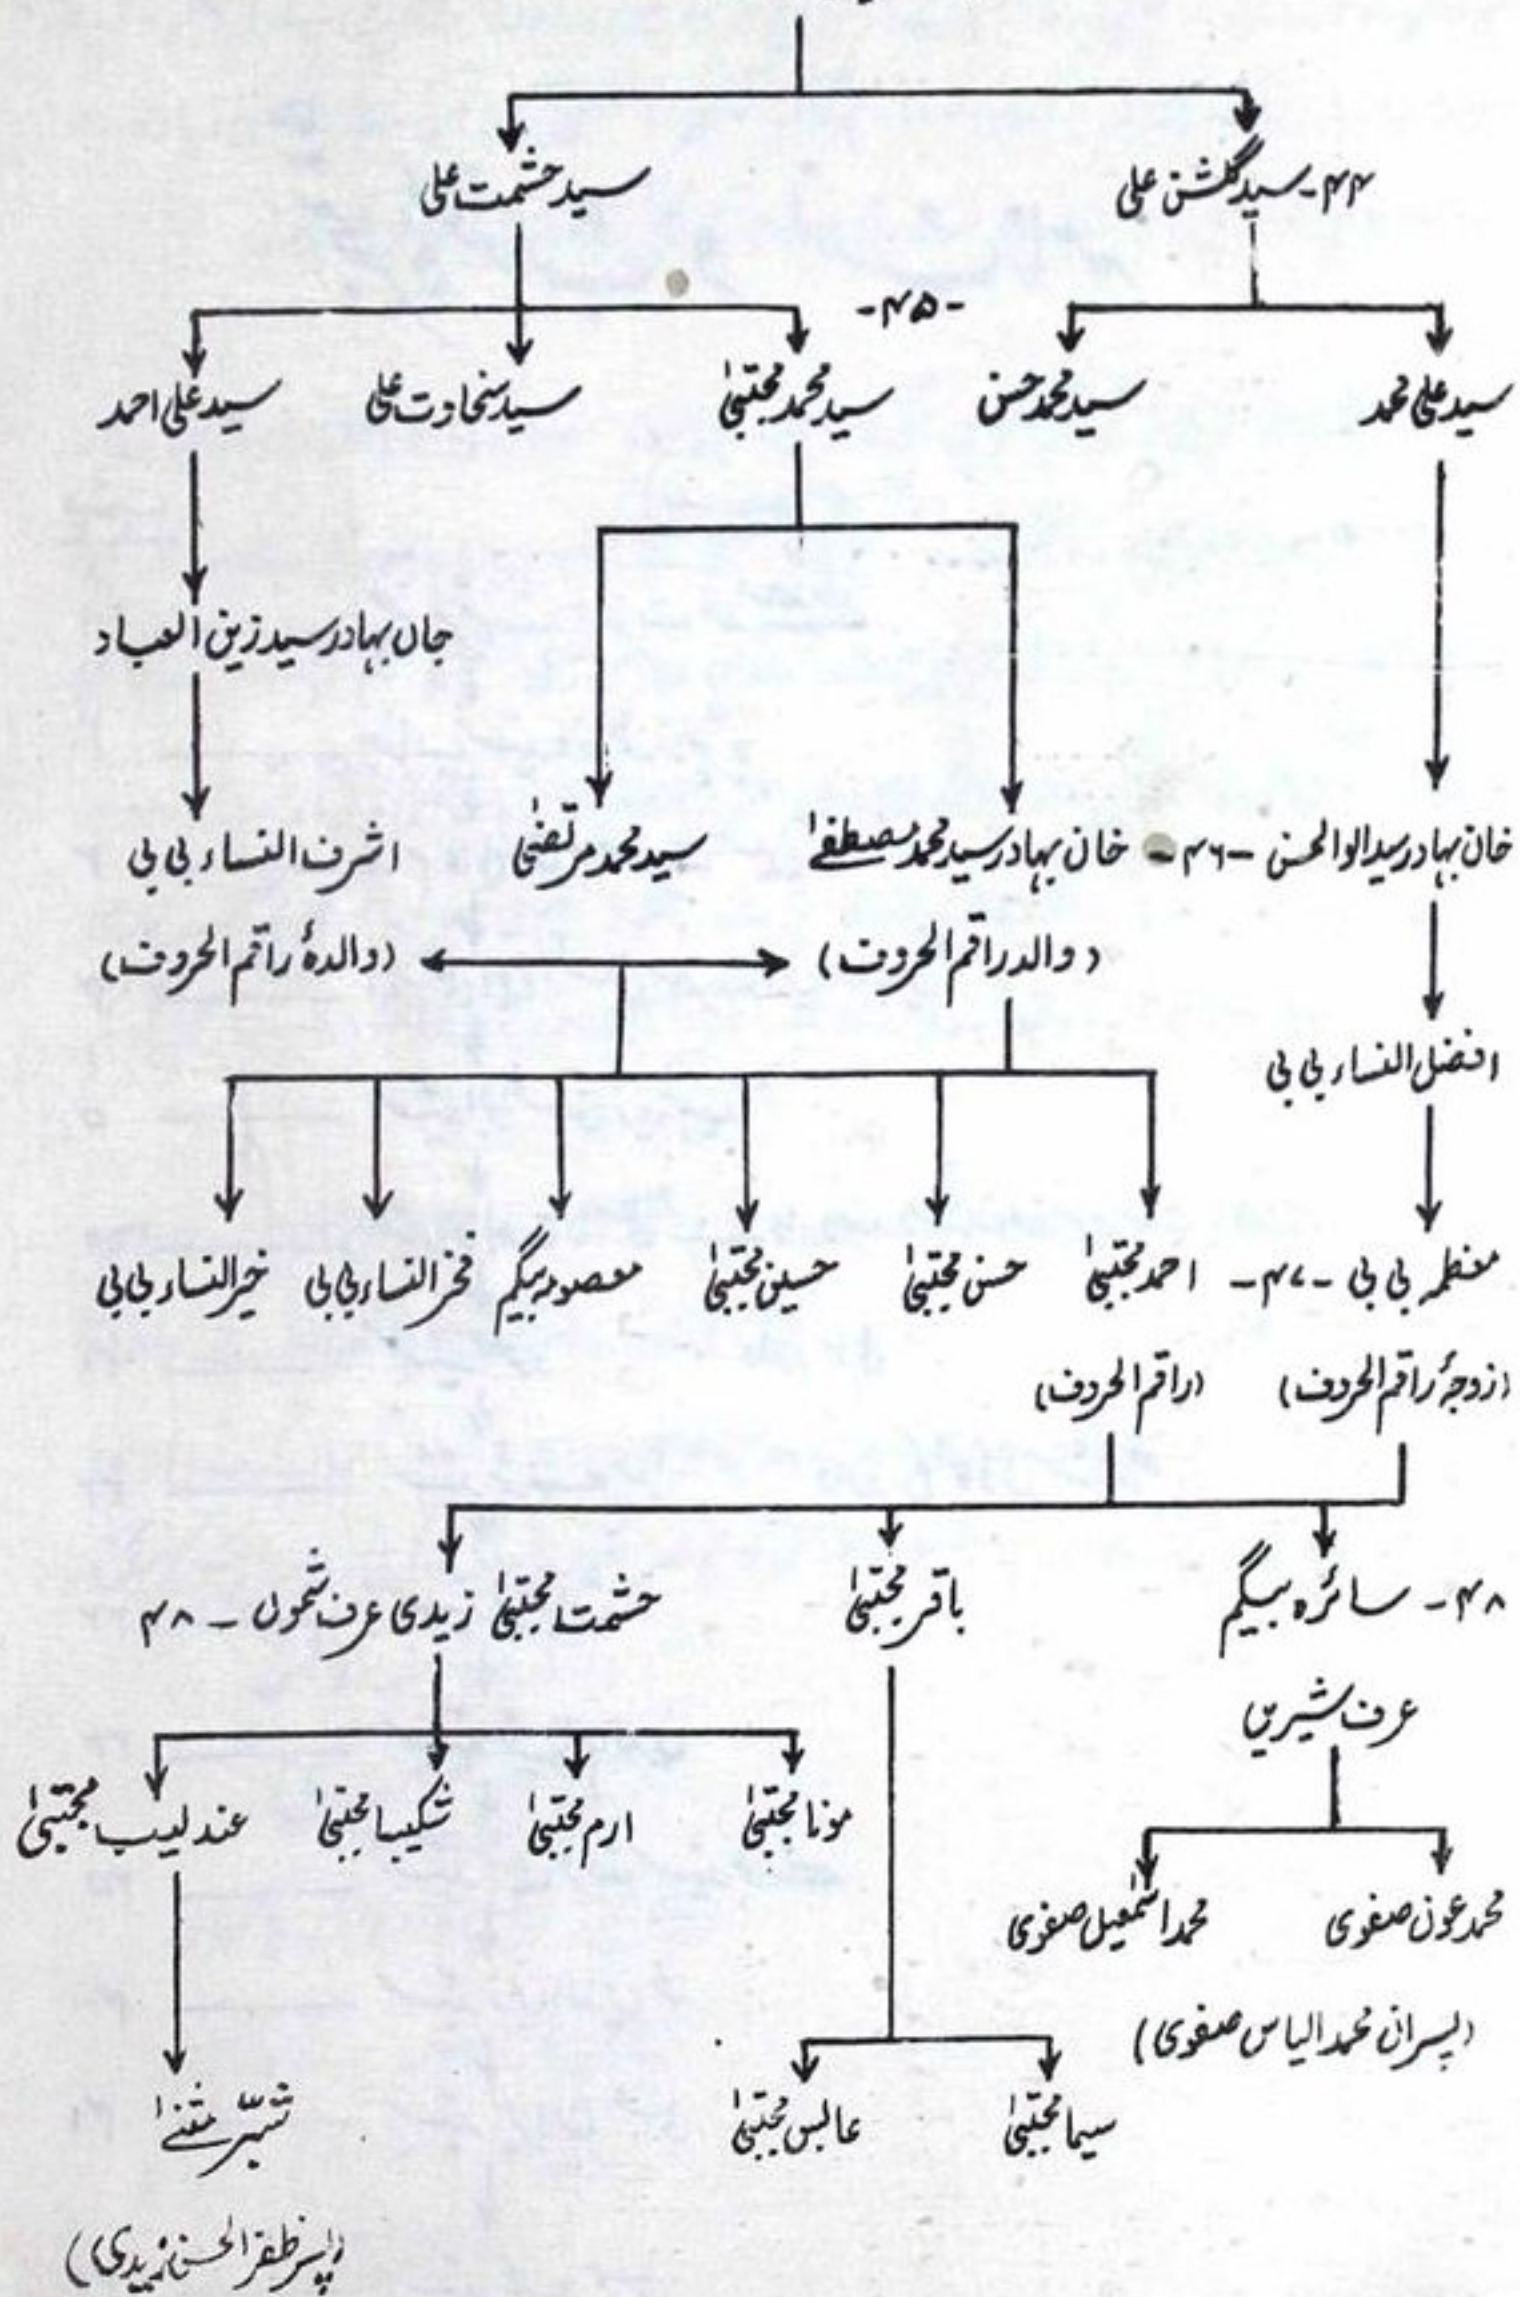 ۴۴- سید گلشن علی سید حشمت علی
-۴۵-
سید علی محمد سید محمد حسن سید محمد مجتبیٰ سید سخاوت علی سید علی احمد
جان بہادر سید زین العباد
خان بہادر سید ابوالحسن -۴۶- خان بہادر سید محمد مصطفےٰ سید محمد مرتضیٰ اشرف النساء بی بی
(والد راقم الحروف) (والدۂ راقم الحروف)
افضل النساء بی بی
معظمہ بی بی -۴۷- احمد مجتبیٰ حسن مجتبیٰ حسین مجتبیٰ معصومہ بیگم فخر النساء بی بی خیر النساء بی بی
(زوجۂ راقم الحروف) (راقم الحروف)
۴۸- سائرہ بیگم باقر مجتبیٰ حشمت مجتبیٰ زیدی عرف شمون - ۴۸
عرف شیریں
مونا مجتبیٰ ارم مجتبیٰ شکیبا مجتبیٰ عندلیب مجتبیٰ
محمد عون صفوی محمد اسمٰعیل صفوی
(پسران محمد الیاس صفوی)
سیما مجتبیٰ عابس مجتبیٰ شبّر مثنےٰ
(پسر ظفر الحسن زیدی)